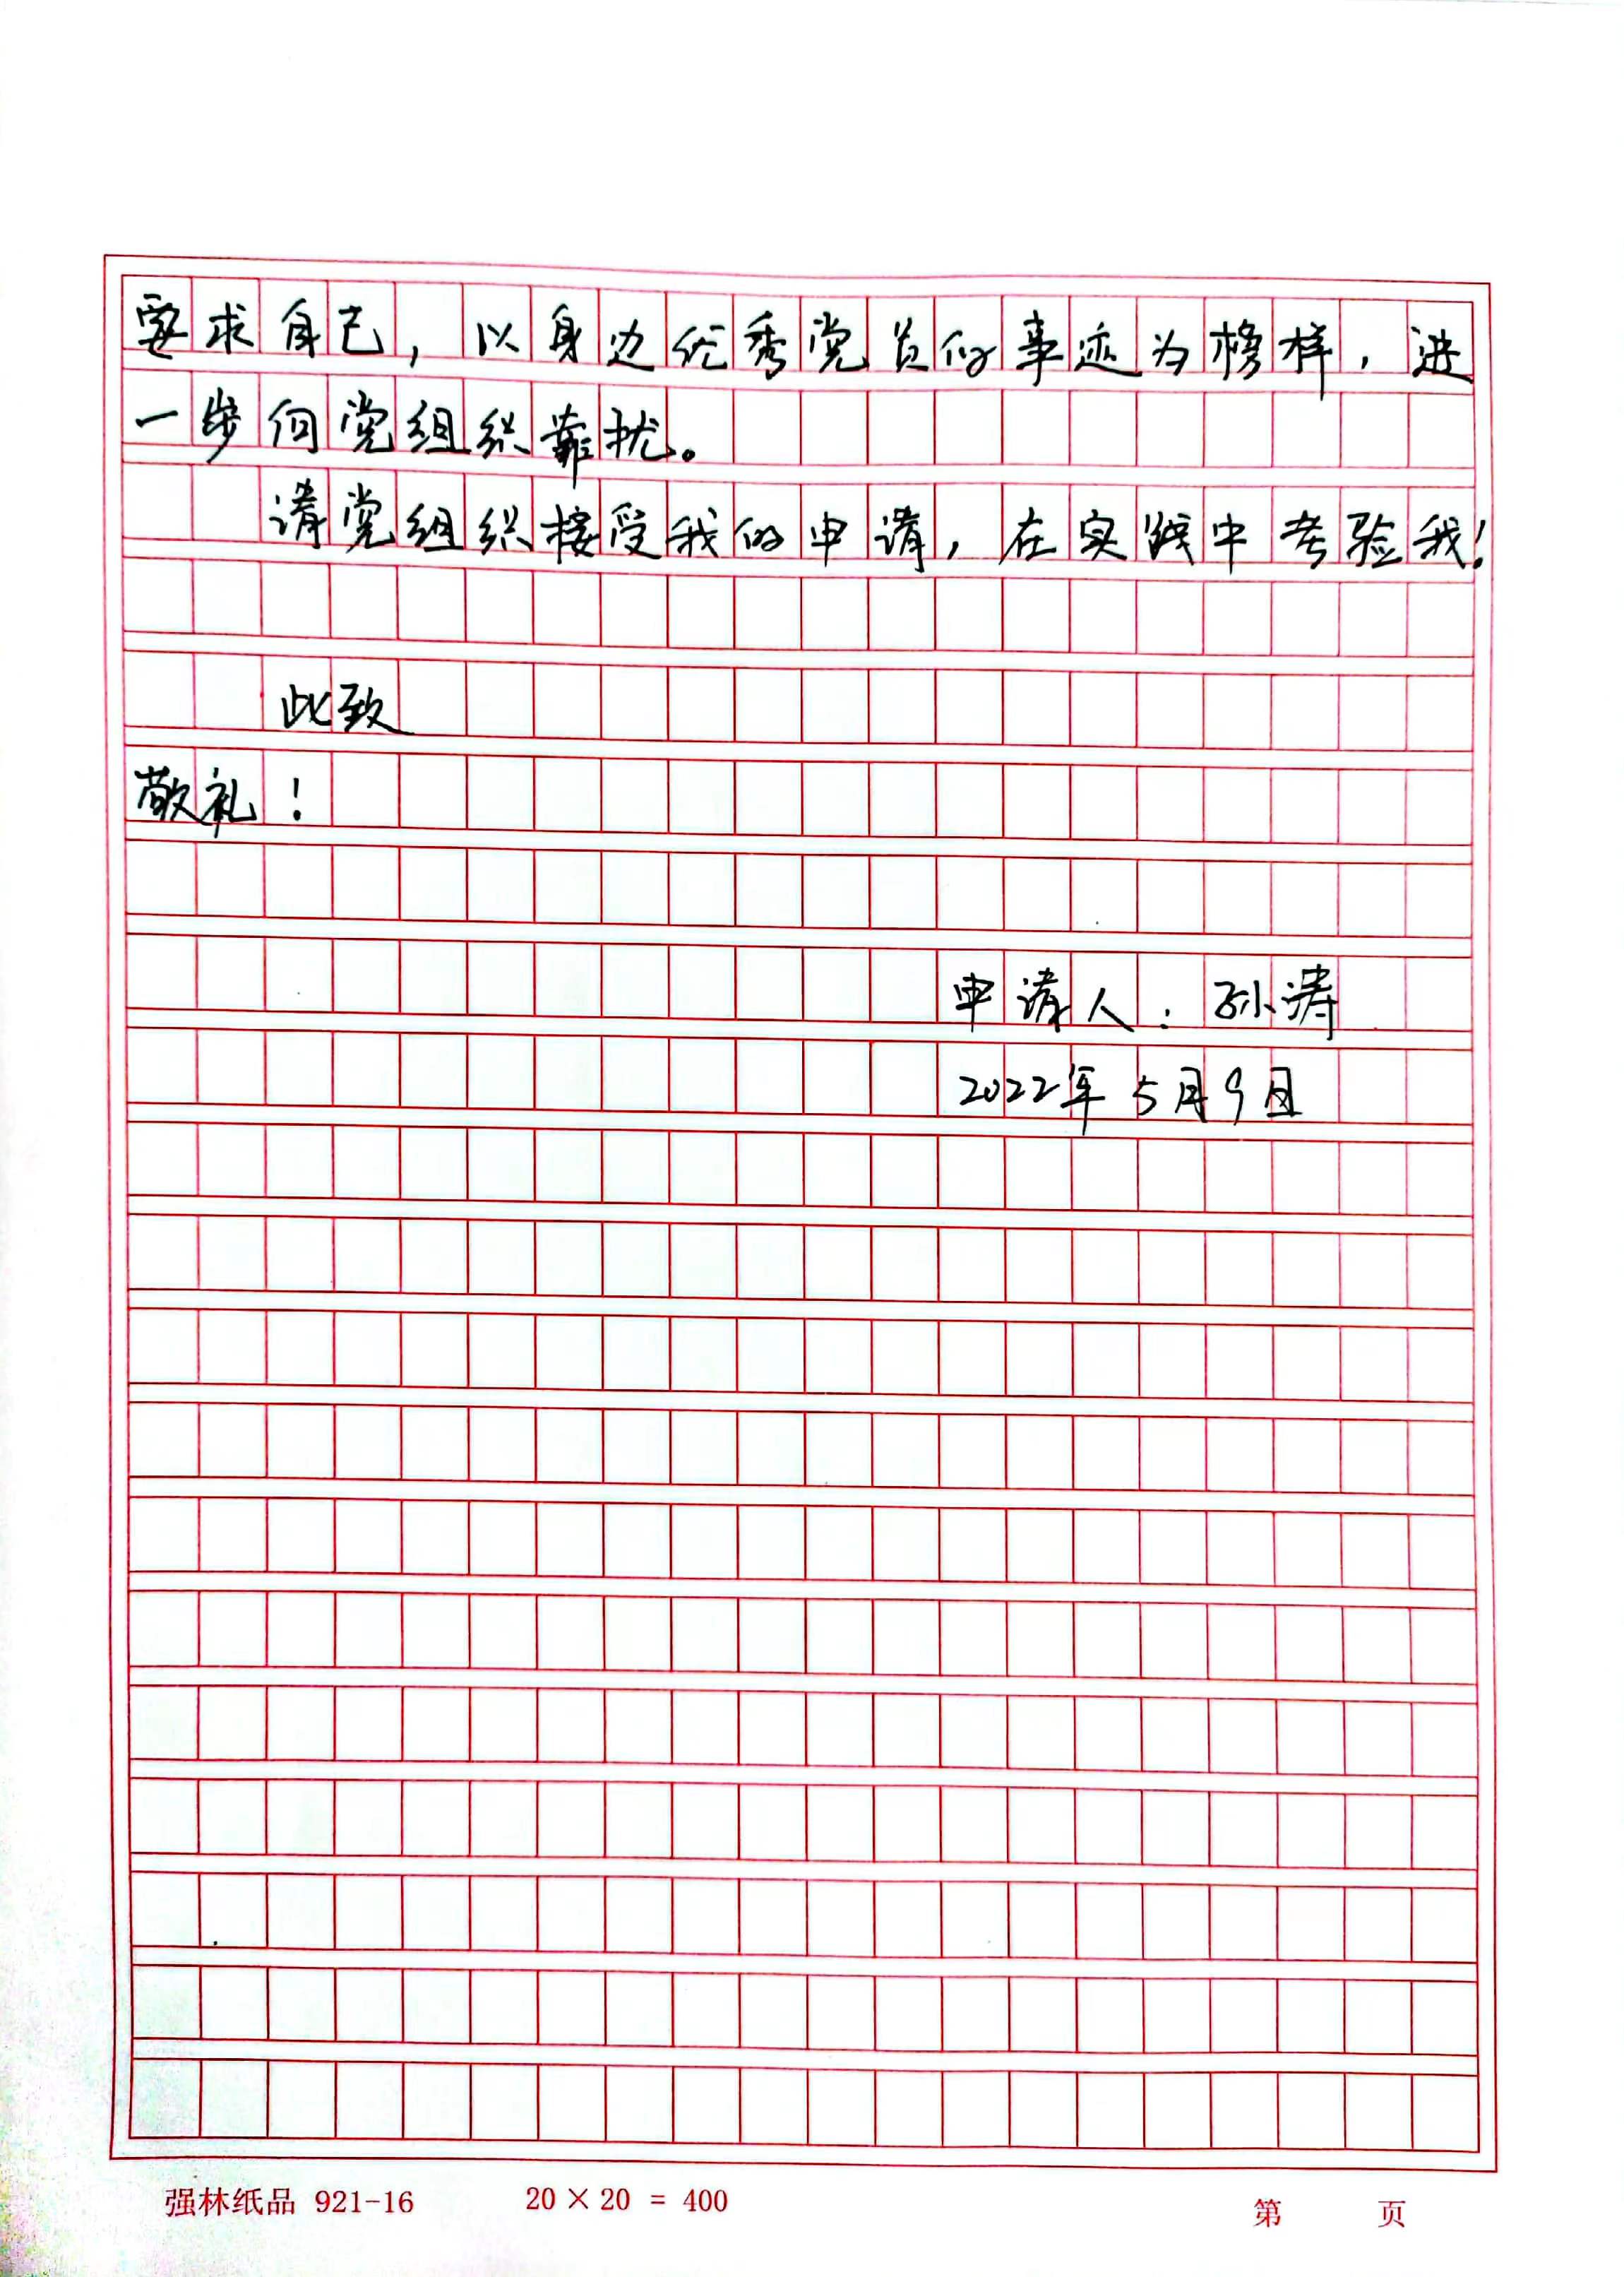 要求自己，以身边优秀党员的事迹为榜样，进
一步向党组织靠拢。
请党组织接受我的申请，在实践中考验我！
此致
敬礼！
申请人：孙涛
2022年5月9日
强林纸品 921-16 20×20 = 400 第 页